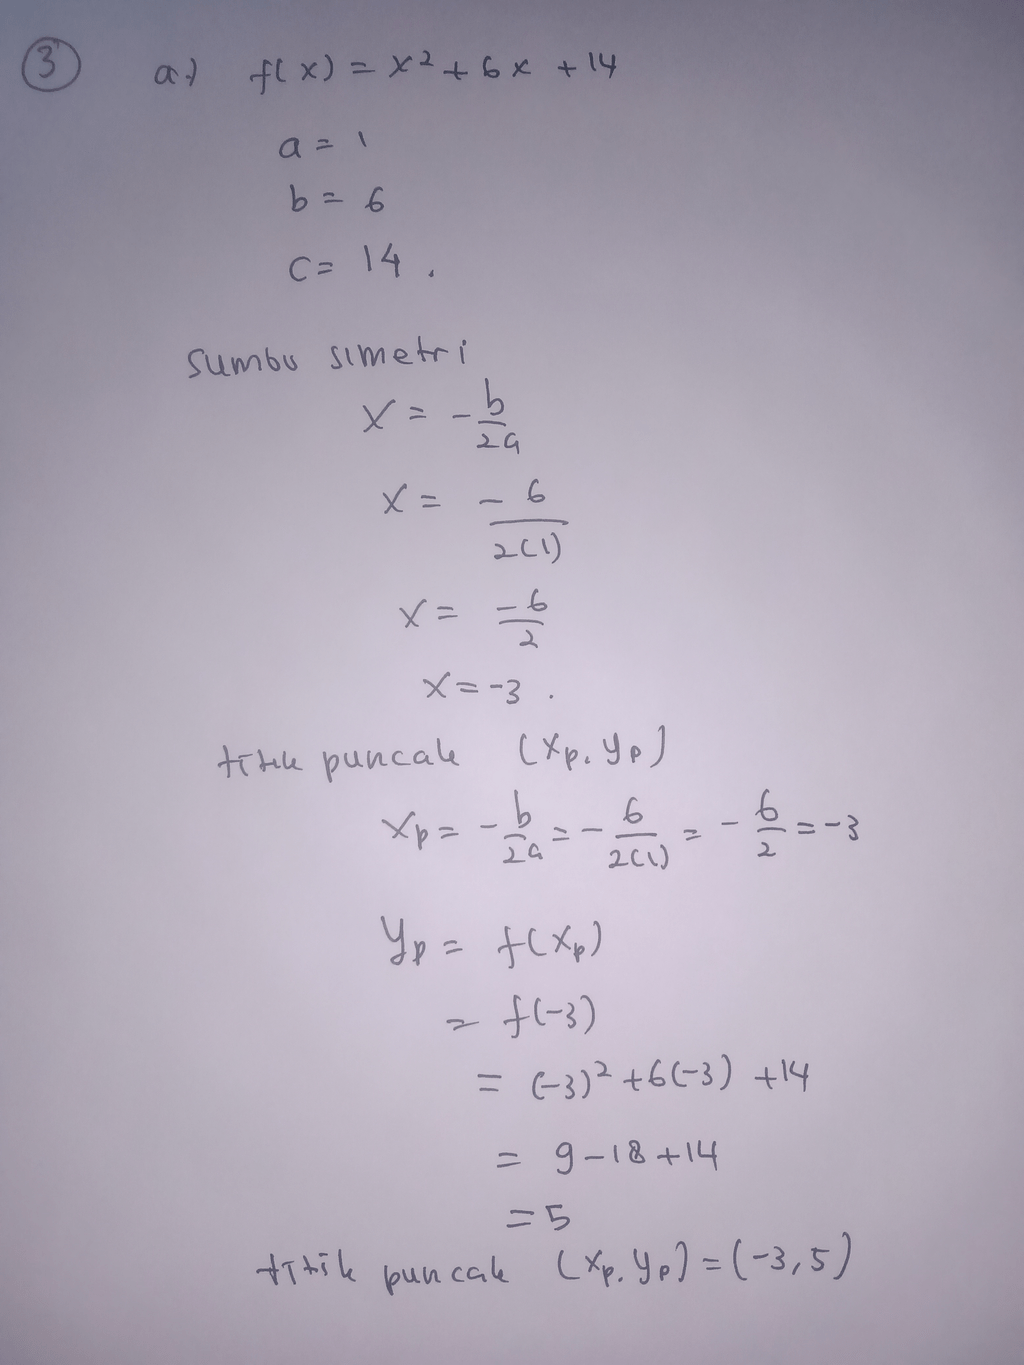 3 a.) f(x) = x² + 6x + 14
a = 1
b = 6
c = 14.
Sumbu simetri
x = - b/2a
x = - 6/2(1)
x = -6/2
x = -3.
titik puncak (xp, yp)
xp = - b/2a = - 6/2(1) = - 6/2 = -3
yp = f(xp)
= f(-3)
= (-3)² + 6(-3) + 14
= 9 - 18 + 14
= 5
titik puncak (xp, yp) = (-3, 5)